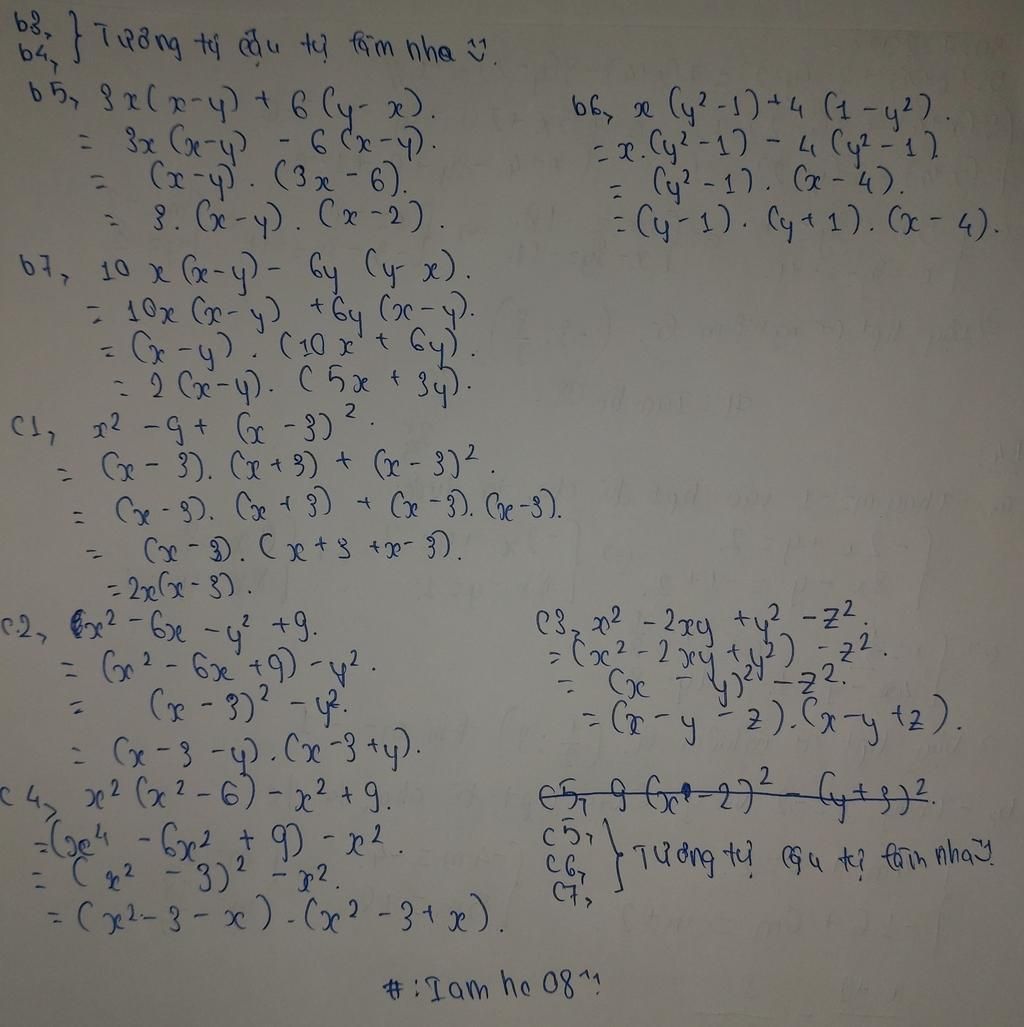 b3,
b4, } Tương tự cậu tự làm nha :).
b5, 3x(x-y) + 6(y-x).
= 3x(x-y) - 6(x-y).
= (x-y).(3x-6).
= 3.(x-y).(x-2).
b6, x(y²-1)+4(1-y²).
= x.(y²-1) - 4(y²-1).
= (y²-1).(x-4).
= (y-1).(y+1).(x-4).
b7, 10x(x-y) - 6y(y-x).
= 10x(x-y) + 6y(x-y).
= (x-y).(10x + 6y).
= 2(x-y).(5x + 3y).
C1, x² - 9 + (x-3)².
= (x-3).(x+3) + (x-3)².
= (x-3).(x+3) + (x-3).(x-3).
= (x-3).(x+3+x-3).
= 2x(x-3).
C2, x² - 6x - y² + 9.
= (x² - 6x + 9) - y².
= (x-3)² - y².
= (x-3-y).(x-3+y).
C3, x² - 2xy + y² - z².
= (x² - 2xy + y²) - z².
= (x - y)² - z².
= (x-y-z).(x-y+z).
C4, x²(x²-6) - x² + 9.
= (x⁴ - 6x² + 9) - x².
= (x² - 3)² - x².
= (x²-3-x).(x²-3+x).
C5, 9(x-2)² - (y+3)².
C5,
C6, } Tương tự cậu tự làm nha :).
C7,
#: I am hc 08^^!